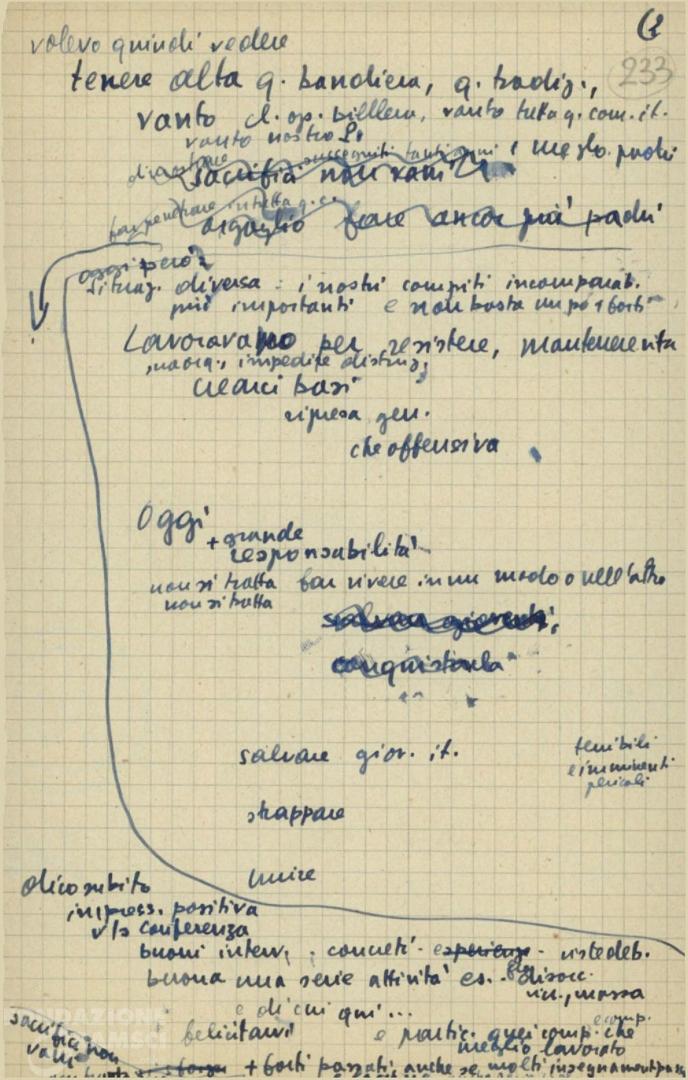 volevo quindi vedere
233
tenere alta q. bandiera, q. tradiz.,
vanto cl. op. biellese, vanto tutta q. com. it.
vanto nostro P.
dimostrare succeduti tanti anni e meglio padri
sacrifici non vani
far penetrare in tutta q. c.
orgoglio fare ancor più padri
oggi però:
Situaz. diversa: i nostri compiti incomparab.
più importanti e non basta un po' + forti
Lavoravamo per resistere, mantenere vita
impedire distruz.
crearci basi
ripresa gen.
che offensiva
Oggi
+ grande
responsabilità
non si tratta far vivere in un modo o nell'altro
non si tratta
salvare gioventù,
conquistarla
salvare giov. it.
terribili
e imminenti
pericoli
strappare
unire
dico subito
impress. positiva
v/s conferenza
buoni interv., concreti - esperienze - viste deb.
buona una serie attività es. disocc.
e di cui qui ...
felicitarvi e partic. quei comp. che
meglio lavorato
sacrifici non
vani
+ forti passati anche se molti insegnamenti